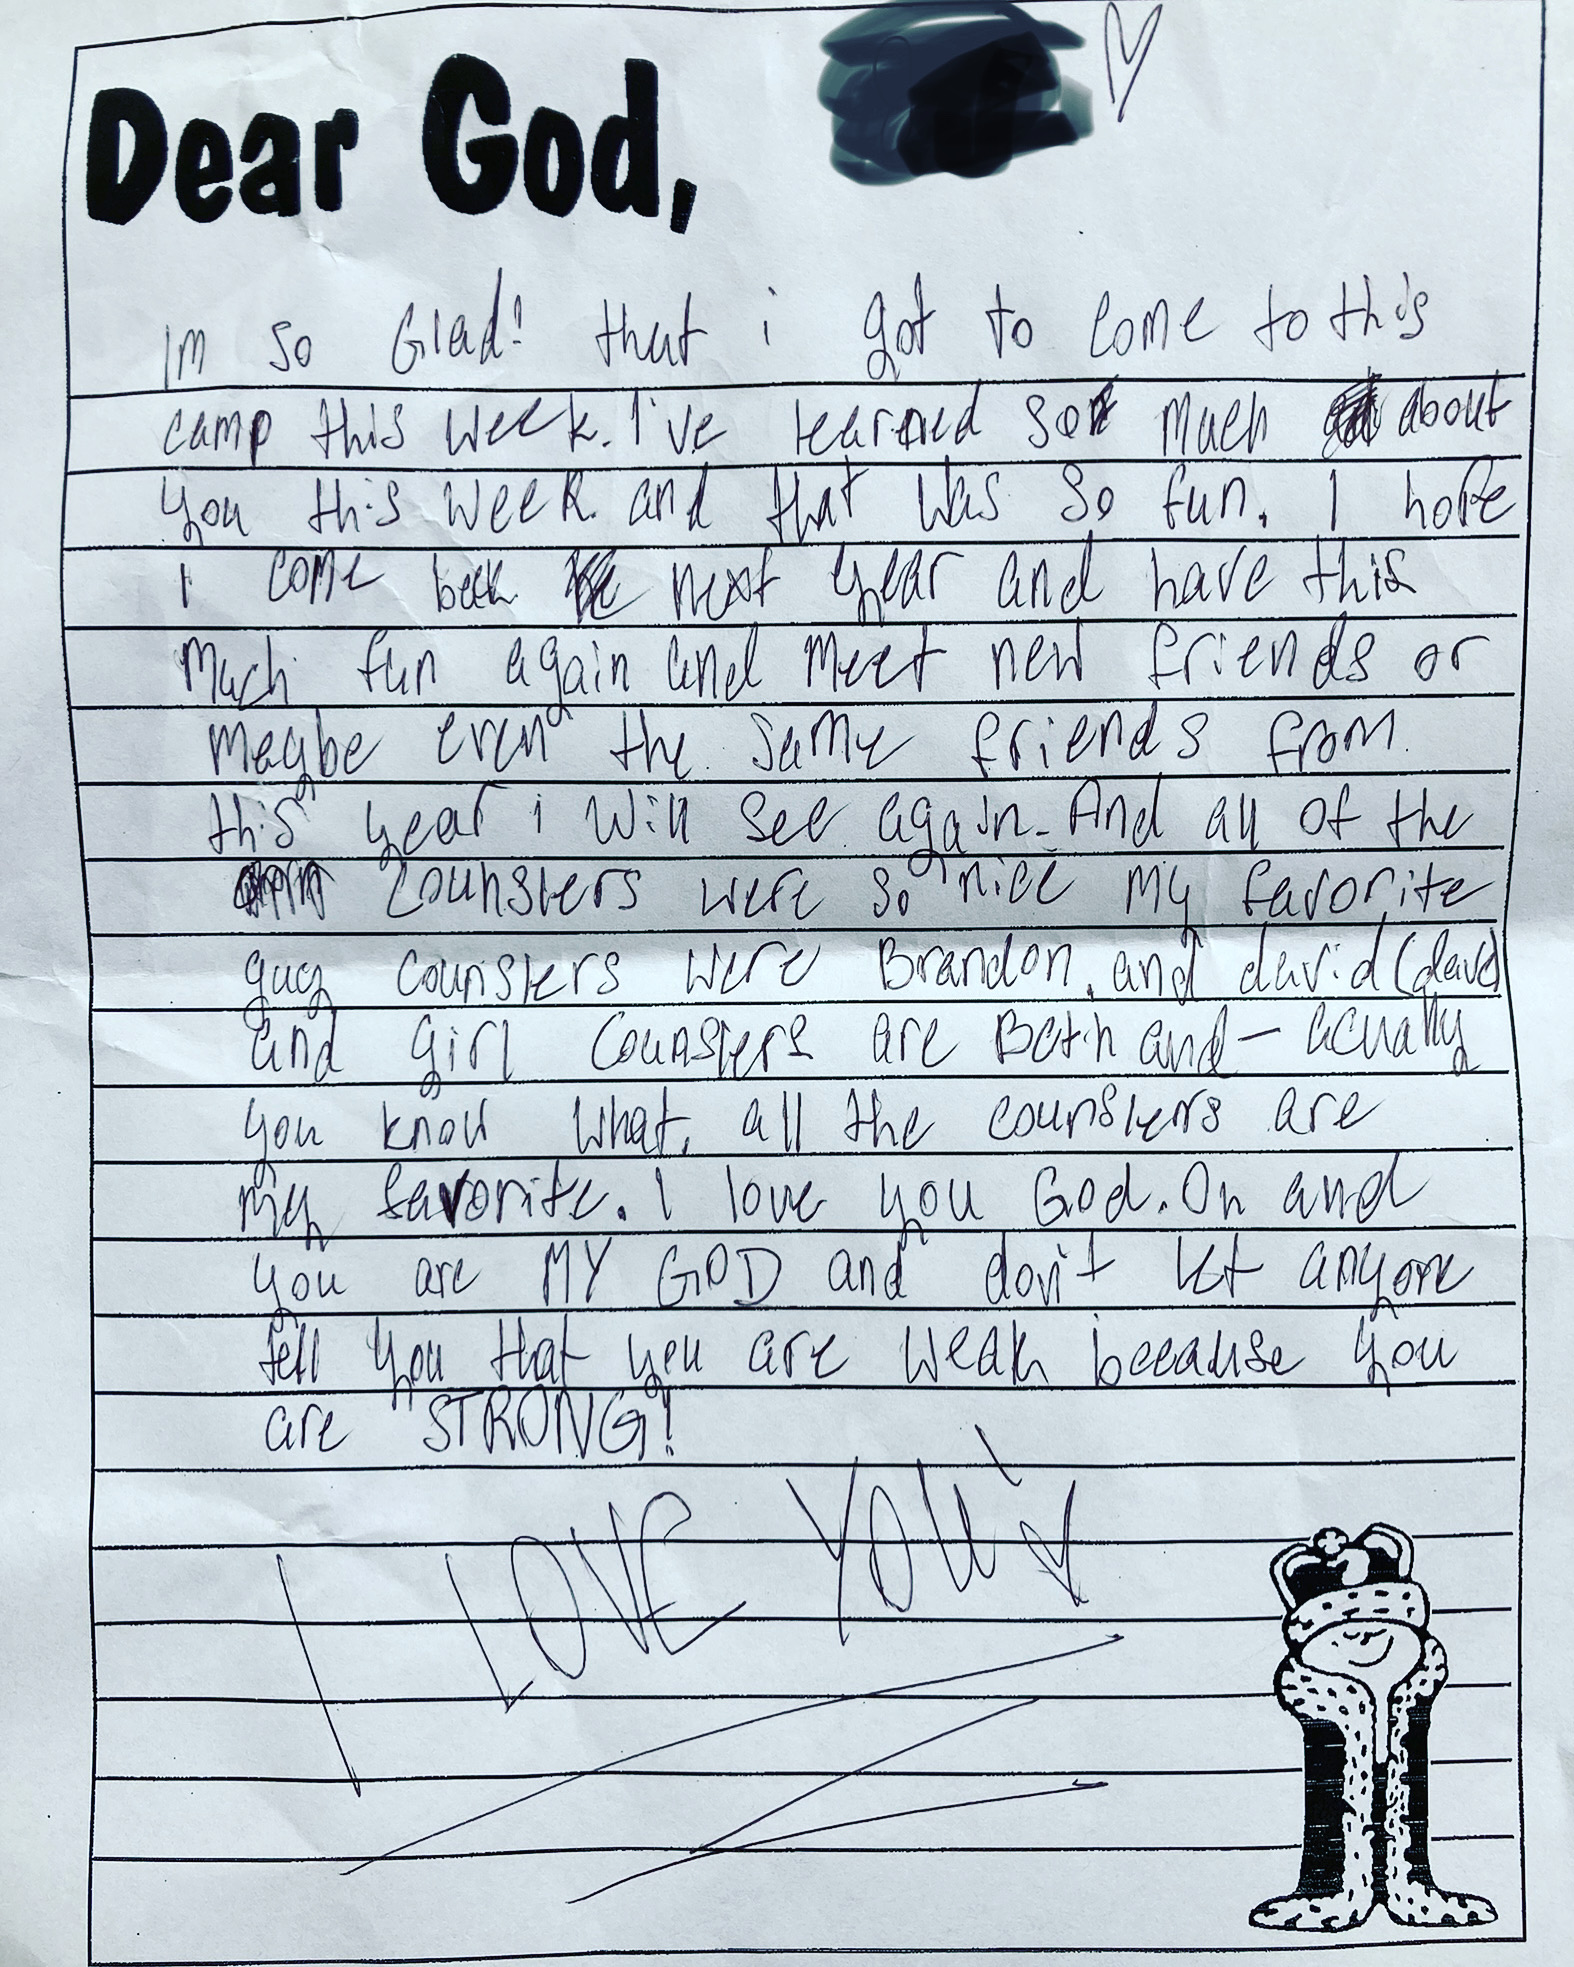 Dear God,
Im so Glad! that i got to come to this
camp this week. I've learned so much about
you this week. and that was so fun. I hope
i come back next year and have this
much fun again and meet new friends or
maybe even the same friends from
this year i will see again. And all of the
counslers were so nice my favorite
guy counslers were Brandon, and david (dave)
and girl counslers are Beth and - acually
you know what, all the counslers are
my favorite. I love you God. Oh and
you are MY GOD and don't let anyone
tell you that you are weak because you
are STRONG!
I LOVE YOU!